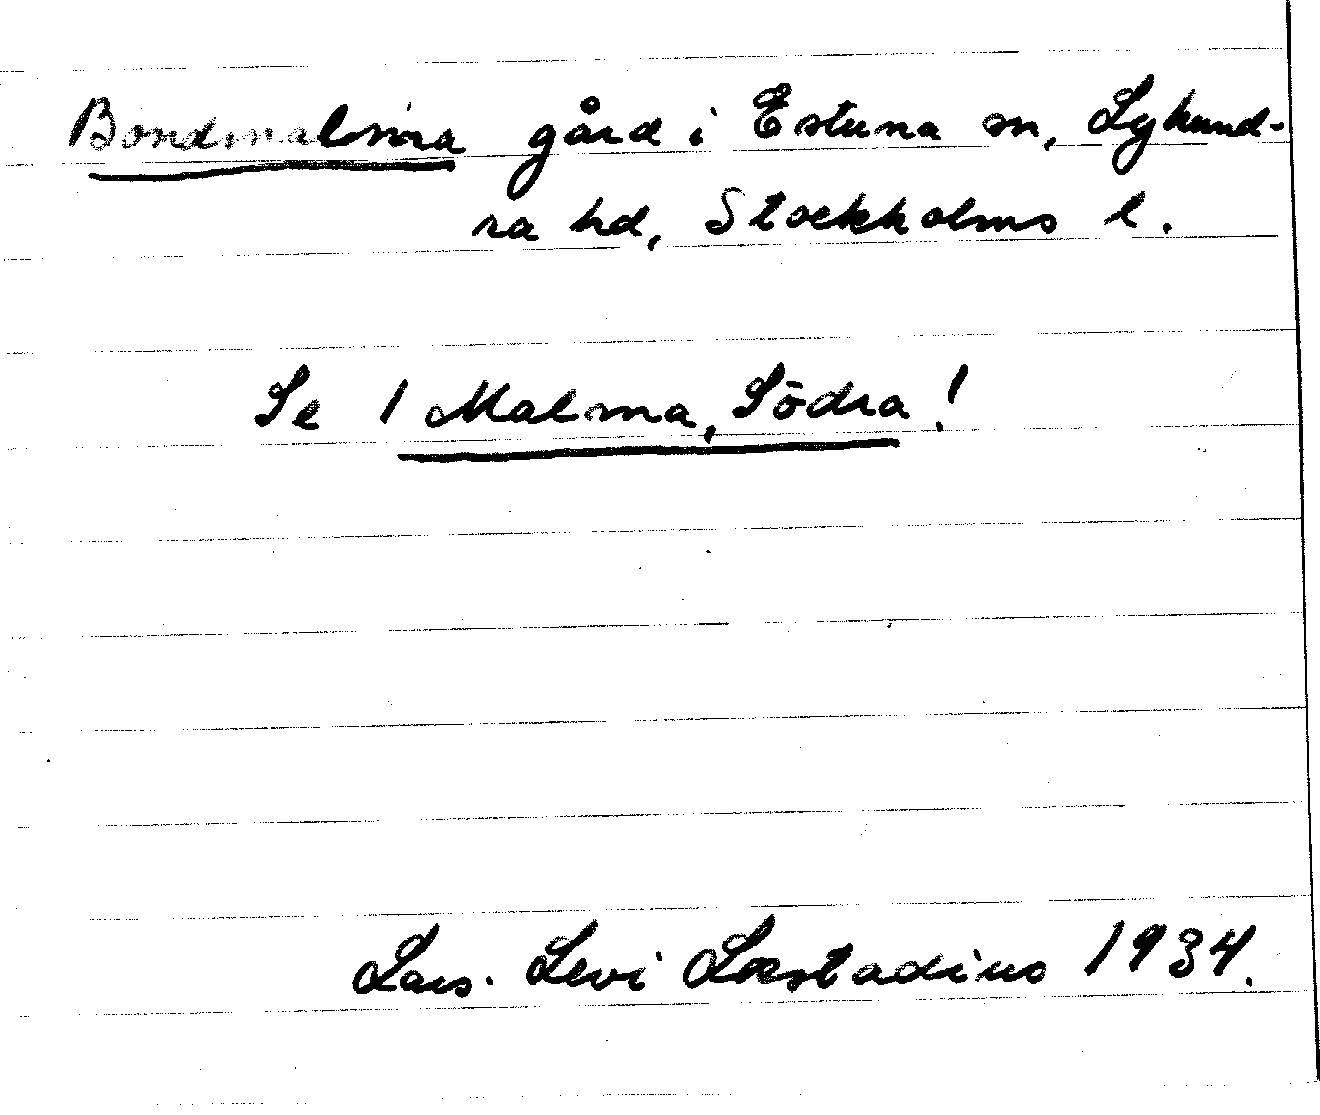 Bondmalmra gård i Estuna sn, Lyhund-
ra hd, Stockholms l.
Se 1 Malma, Södra!
Lars. Levi Læstadius 1934.